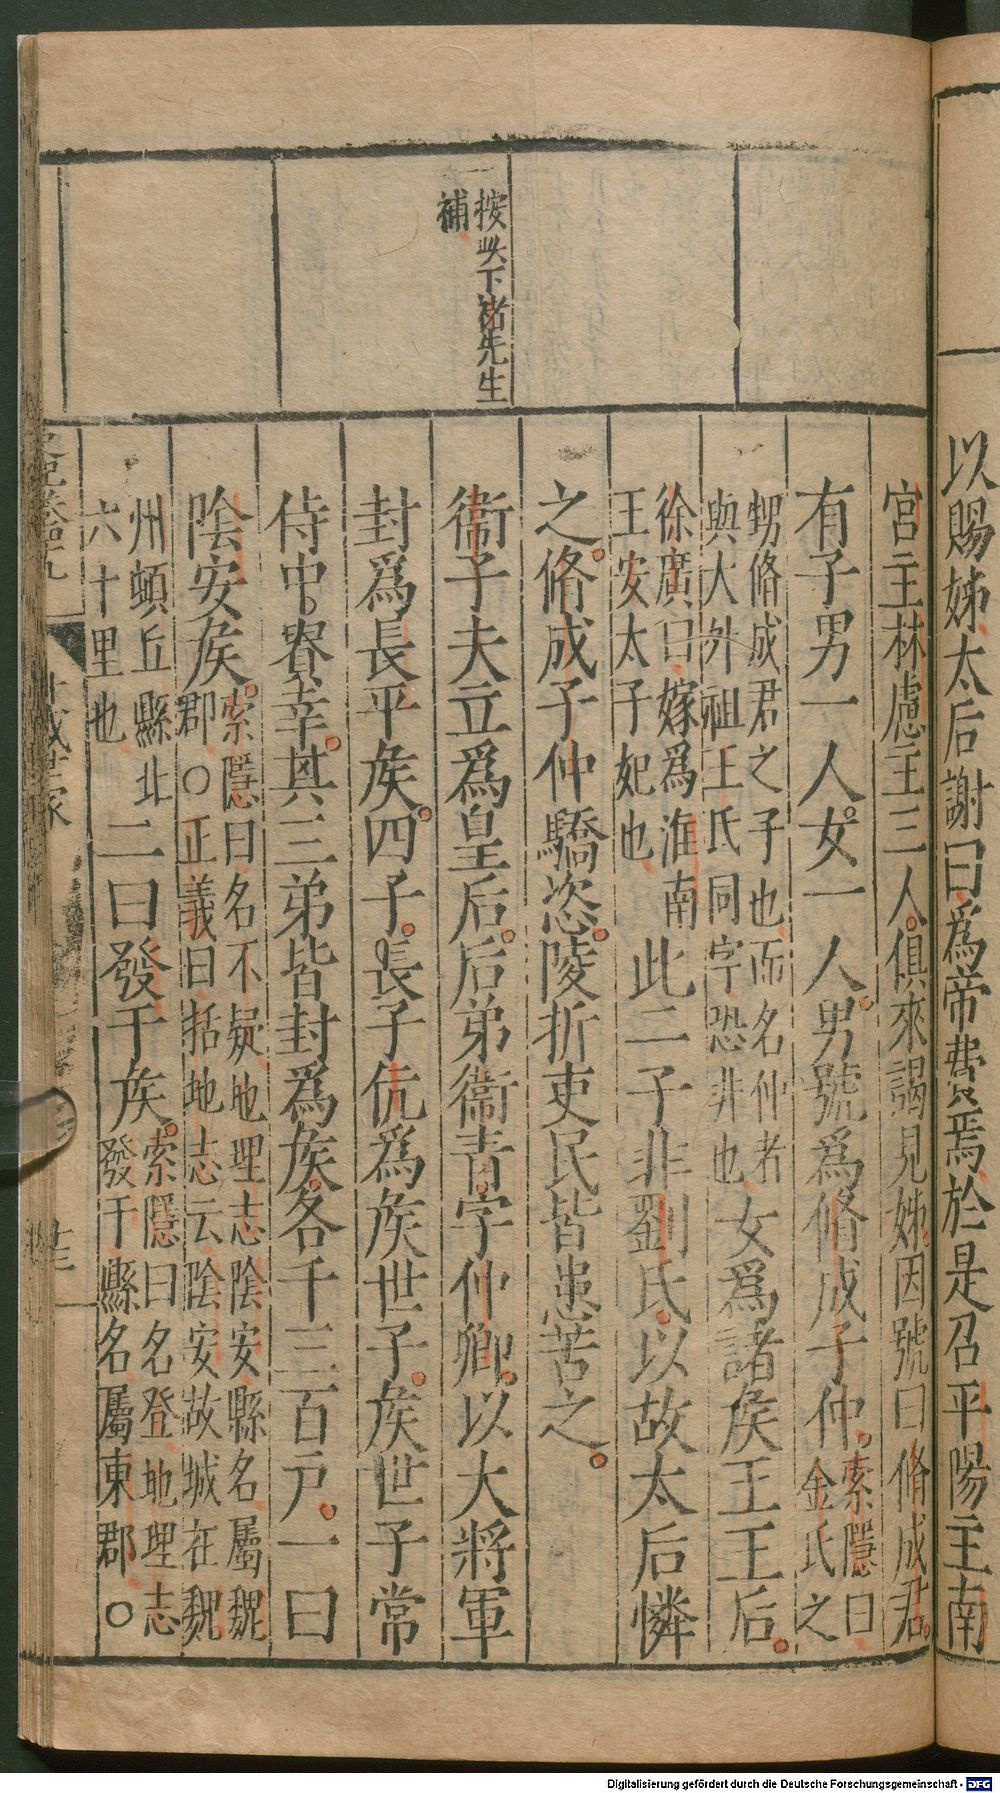 以賜姊太后謝曰爲帝費焉於是召平陽主南
按此下褚先生
補
宮主林慮主三人俱來謁見姊因號曰脩成君
有子男一人女一人男號爲脩成子仲索隱曰金氏之
甥脩成君之子也而名仲者與大外祖王氏同字恐非也女爲諸矦王王后
徐廣曰嫁爲淮南王安太子妃也此二子非劉氏以故太后憐
之脩成子仲驕恣陵折吏民皆患苦之
衞子夫立爲皇后后弟衞青字仲卿以大將軍
封爲長平矦四子長子伉爲矦世子矦世子常
侍中寮幸其三弟皆封爲矦各千三百戸一曰
陰安矦索隱曰名不疑地理志陰安縣名屬魏郡○正義曰括地志云陰安故城在魏
州頓丘縣北六十里也二曰發干矦索隱曰名登地理志發干縣名屬東郡○
世家
Digitalisierung gefördert durch die Deutsche Forschungsgemeinschaft - DFG